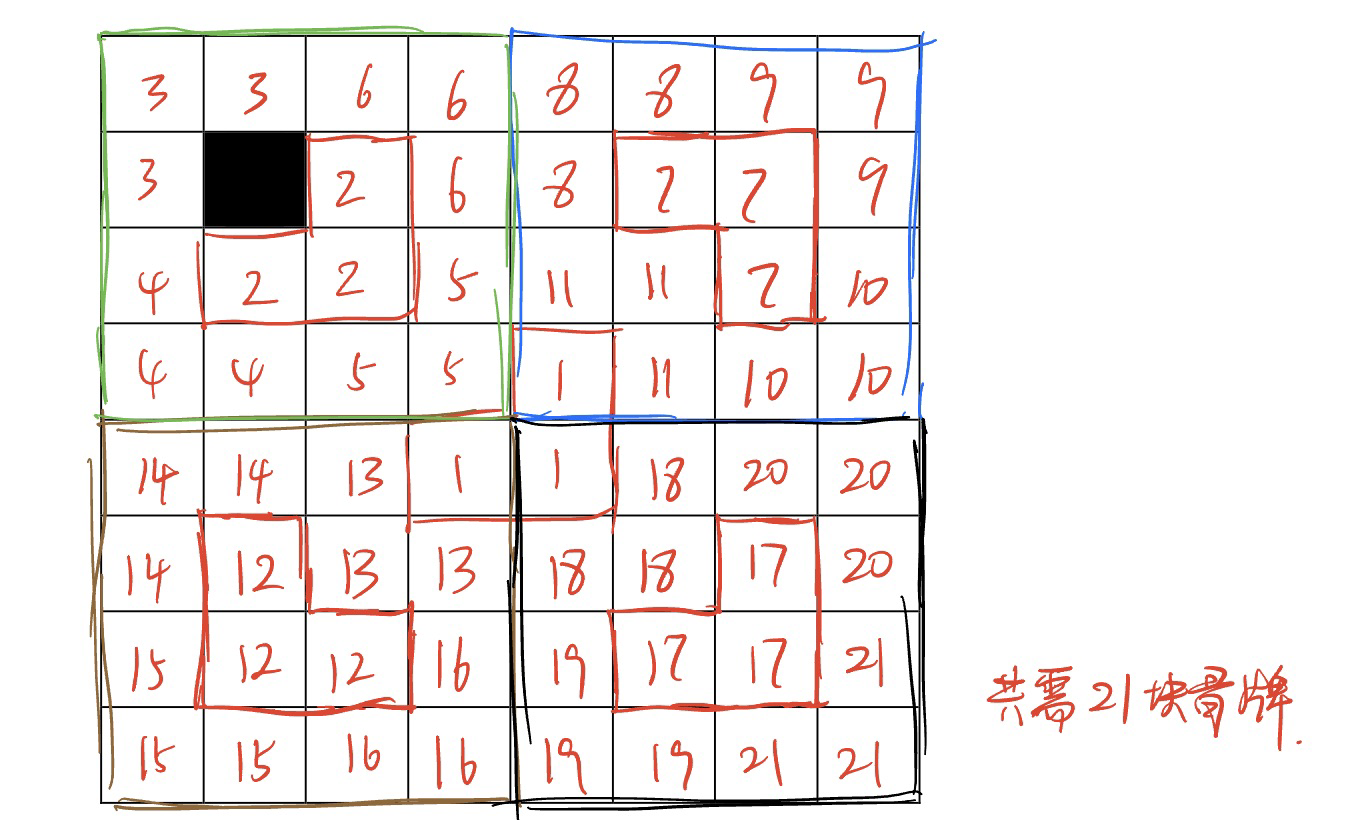 3 3 6 6 8 8 9 9
3 2 6 8 7 7 9
4 2 2 5 11 11 7 10
4 4 5 5 1 11 10 10
14 14 13 1 1 18 20 20
14 12 13 13 18 18 17 20
15 12 12 16 19 17 17 21
15 15 16 16 19 19 21 21
共需21块骨牌.